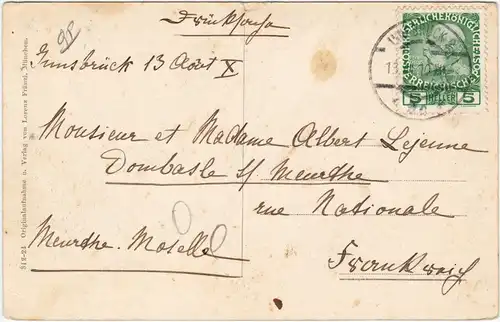 98
Drucksache
Innsbruck 13 Août X
KAISERLICHE KÖNIGLICHE
ÖSTERREICHISCHE
5 HELLER 5
13.
Monsieur et Madame Albert Lejeune
Dombasle s/ Meurthe
rue Nationale
Meurthe-Moselle
Frankreich
312-24 Originalaufnahme u. Verlag von Lorenz Fränzl, München.